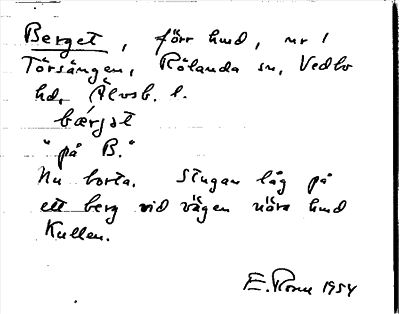 Berget, förr hmd, nr 1
Törsängen, Rölanda sn, Vedbo
hd, Älvsb. l.
bǽrjət
"på B."
Nu borta. Stugan låg på
ett berg vid vägen nära hmd
Kullen.
E. 1954